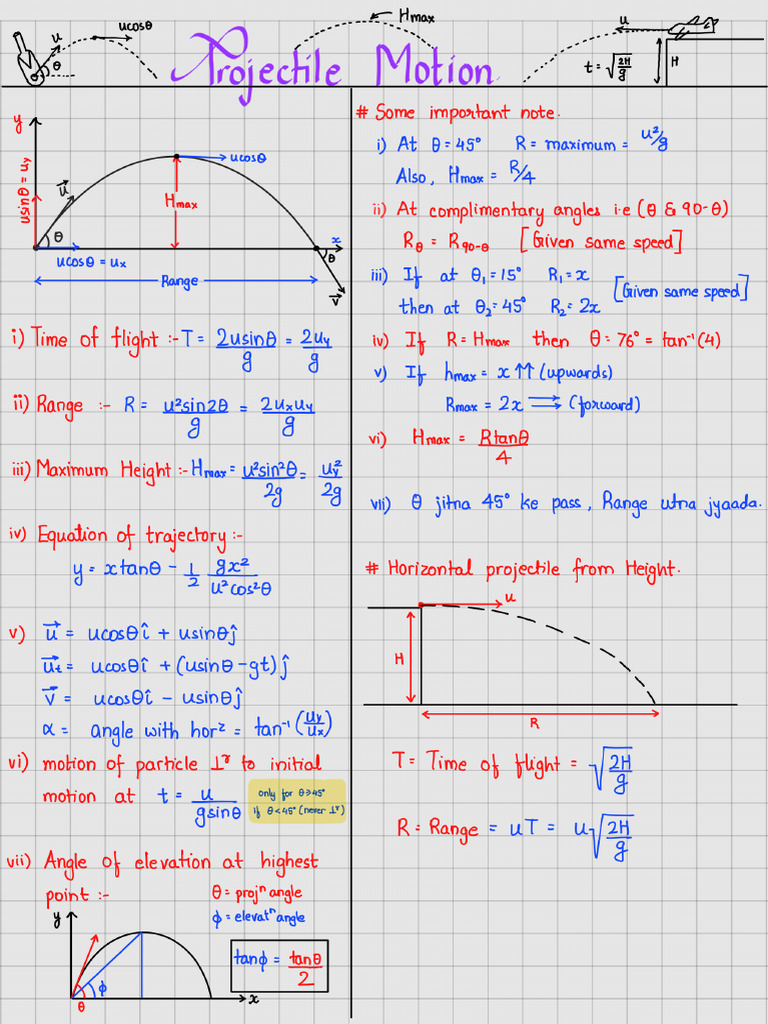 ucosθ
u
θ
Hmax
u
H
t = √(2H/g)
Projectile Motion
y
usinθ = uy
u⃗
θ
ucosθ
Hmax
x
ucosθ = ux
θ
Range
v⃗
i) Time of flight :- T = 2usinθ/g = 2uy/g
ii) Range :- R = u²sin2θ/g = 2uxuy/g
iii) Maximum Height :- Hmax = u²sin²θ/2g = uy²/2g
iv) Equation of trajectory :-
y = xtanθ - 1/2 gx²/u²cos²θ
v) u⃗ = ucosθî + usinθĵ
u⃗t = ucosθî + (usinθ-gt)ĵ
v⃗ = ucosθî - usinθĵ
α = angle with horᶻ = tan⁻¹(uy/ux)
vi) motion of particle ⊥ʳ to initial
motion at t = u/gsinθ
only for θ≥45°
if θ<45° (never ⊥ʳ)
vii) Angle of elevation at highest
point :-
θ = projⁿ angle
ϕ = elevatⁿ angle
y
ϕ
θ
x
tanϕ = tanθ/2
# Some important note.
i) At θ = 45° R = maximum = u²/g
Also, Hmax = R/4
ii) At complimentary angles i.e (θ & 90-θ)
Rθ = R90-θ [Given same speed]
iii) If at θ₁ = 15° R₁ = x
then at θ₂ = 45° R₂ = 2x
[Given same speed]
iv) If R = Hmax then θ = 76° = tan⁻¹(4)
v) If hmax = x ↑↑ (upwards)
Rmax = 2x ⇉ (forward)
vi) Hmax = Rtanθ/4
vii) θ jitna 45° ke pass, Range utna jyaada.
# Horizontal projectile from Height.
u
H
R
T = Time of flight = √(2H/g)
R = Range = uT = u√(2H/g)